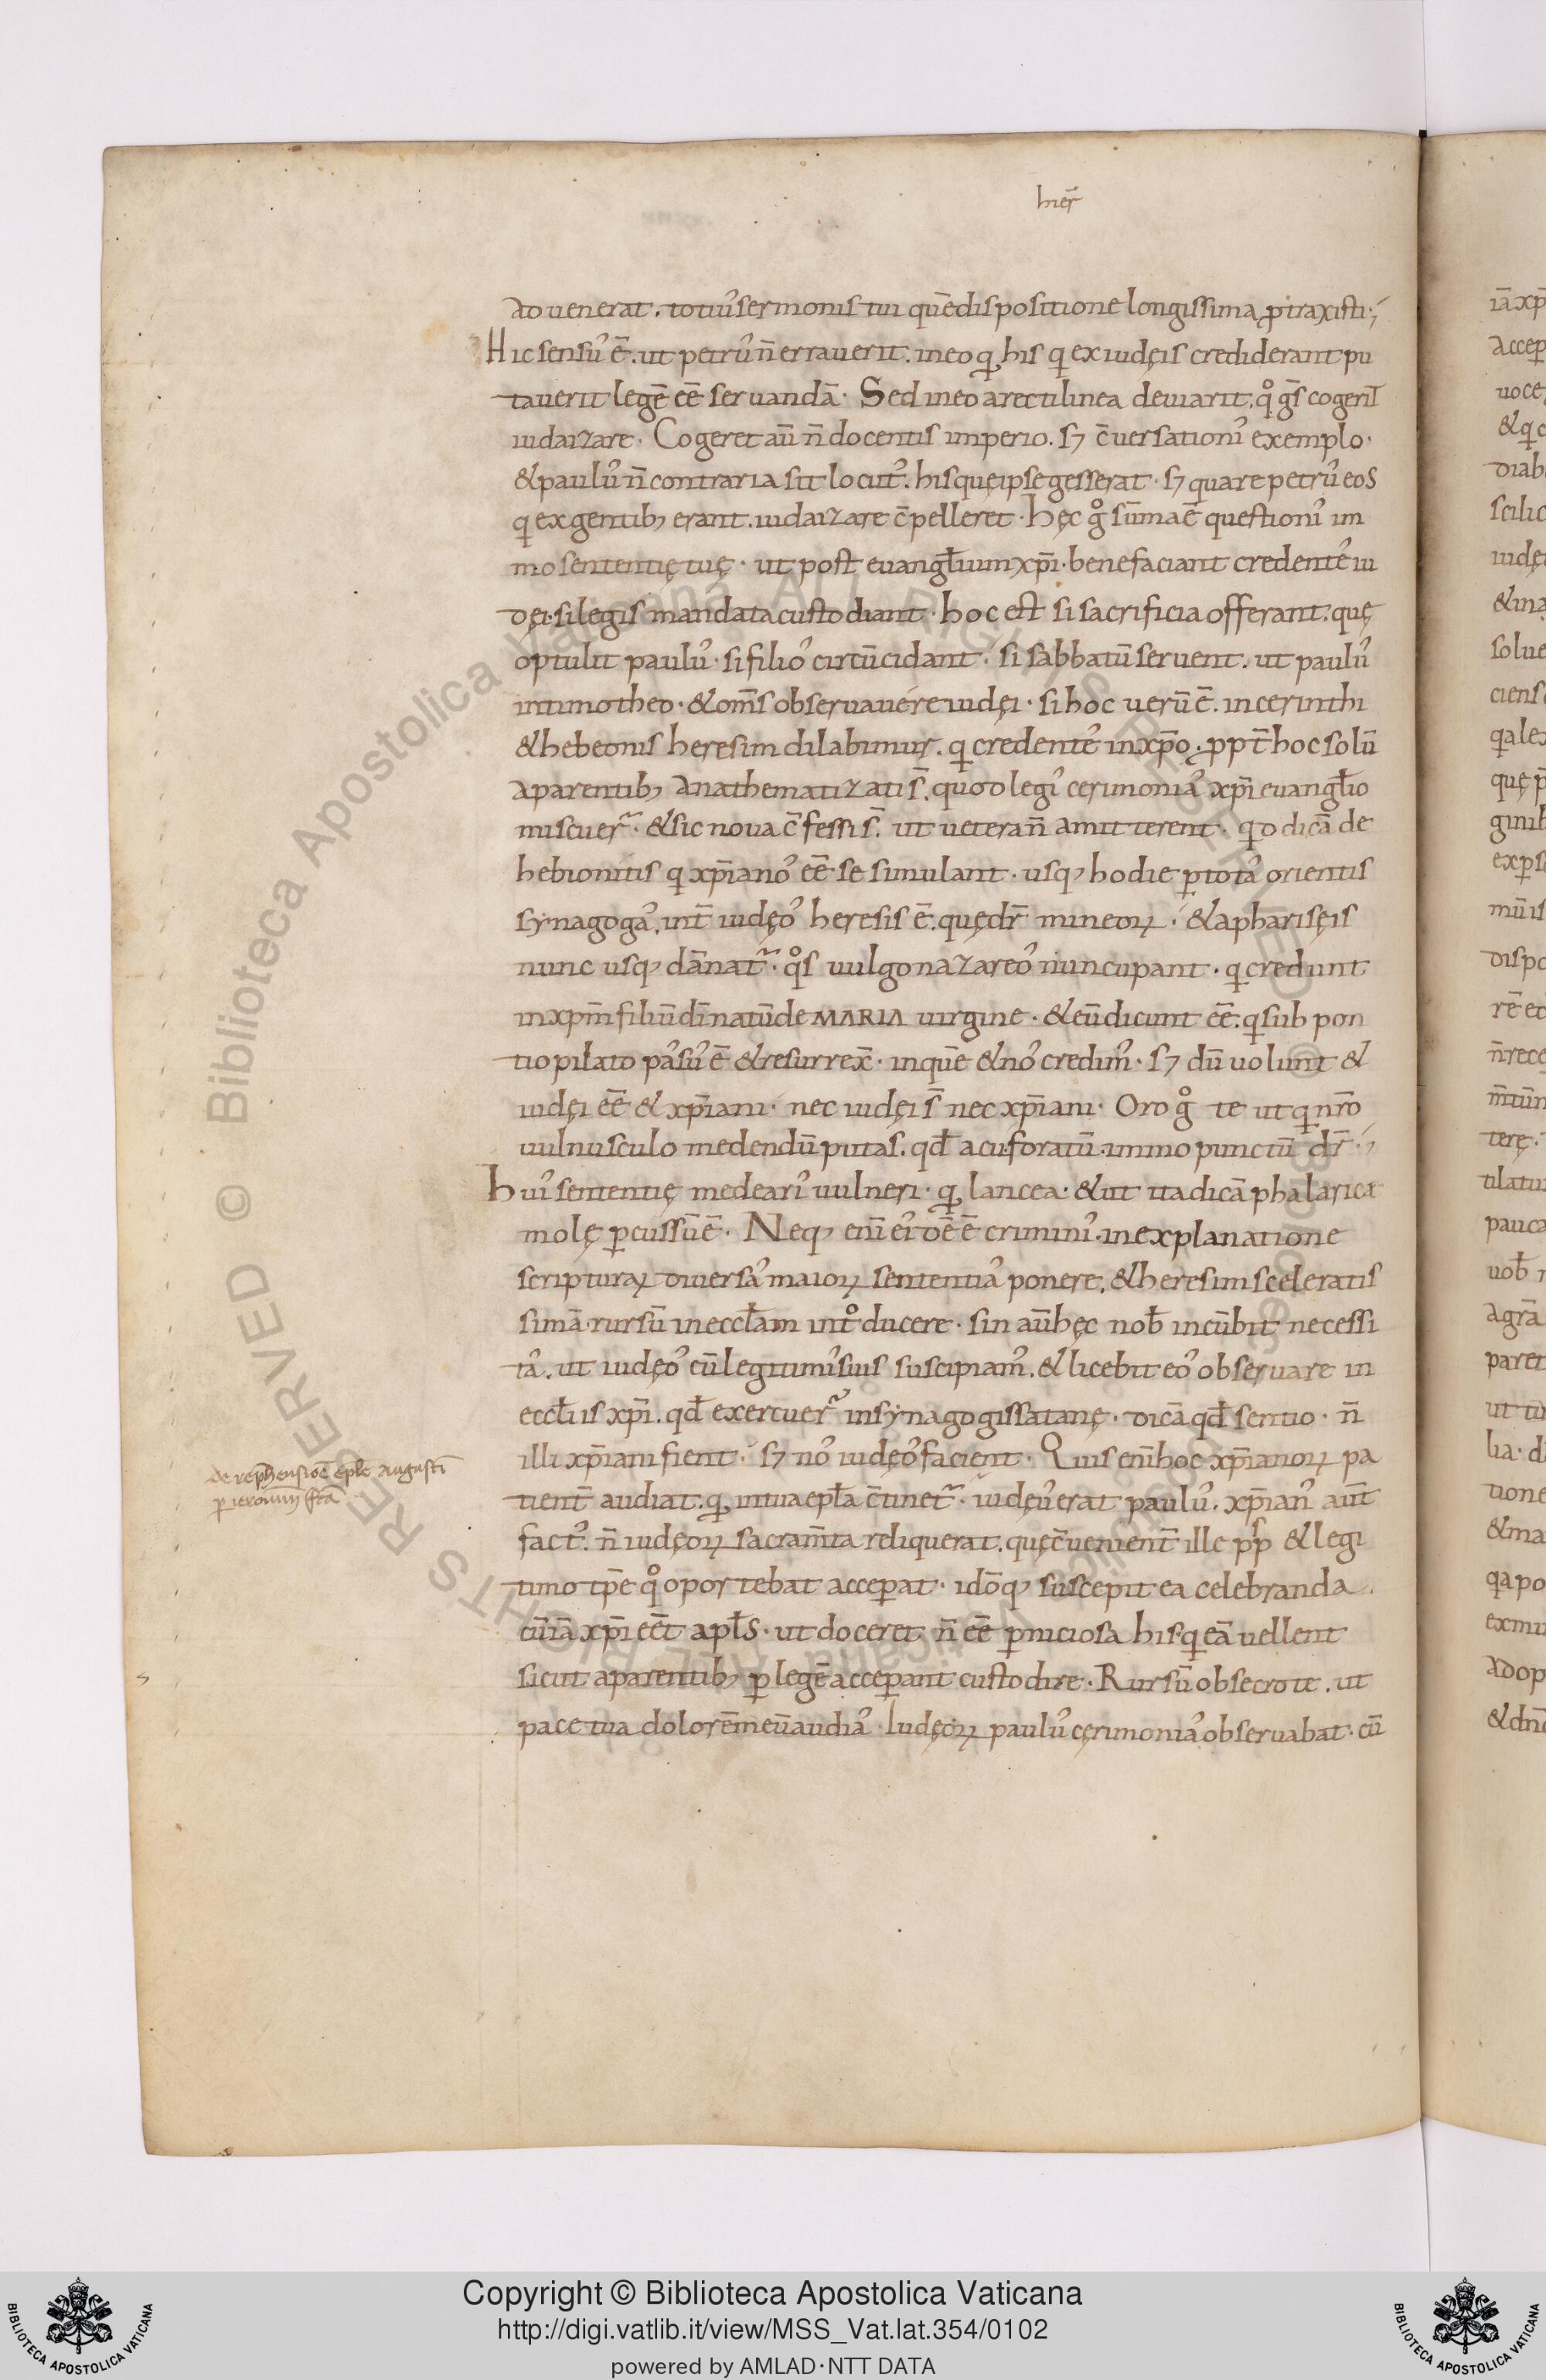 hier̄
ad uenerat. totiuſ sermonis tui quē dispositione longissima ptraxisti·
Hic sensuſ ē. ut petruſ n̄ errauerit. in eo qđ his q̇ ex iudęis crediderant pu
tauerit legē eē seruandā· Sed in eo a recti linea deuiarit. qͦ gs̄ cogerit̄
iudaizare· Cogeret aū n̄ docentis imperio. s; c̄uersationiſ exemplo·
& pauluſ n̄ contraria sit locutuſ. his quę ipse gesserat· s; quare petruſ eos
q̇ ex gentib; erant. iudaizare c̄pelleret· hęc gͦ sūma ē questioniſ im
mo sententię tuę· ut post euangl̄ium xp̄i· bene faciant credenteſ iu
dęi· si legis mandata custodiant· hoc est si sacrificia offerant. quę
optulit pauluſ· si filioſ circūcidant· si sabbatū seruent. ut pauluſ
in timotheo· & oms̄ obseruauere iudęi· si hoc uerū ē. in cerinthi
& hebeonis heresim dilabimur. q̇ credenteſ in xp̄o. ppt̄ hoc solū
a parentib; anathematizati s̄. quod legiſ cerimoniaſ xp̄i euangl̄io
miscuer̄· & sic noua c̄fessi s̄. ut uetera n̄ amitterent· qd dicā de
hebionitis q̇ xp̄ianoſ eē se simulant· usq; hodie p totaſ orientis
synagogaſ. int̄ iudęoſ heresis ē. quę dr̄ mineoꝝ· & a pharisęis
nunc usq; dānat̄. qͦs uulgo nazareoſ nuncupant· q̇ credunt
in xpm̄ filiū dī natū de MARIA uirgine· & eū dicunt eē. q̇ sub pon
tio pilato passuſ ē & resurrex̄· in quē & noſ credimuſ· s; dū uolunt &
iudęi eē & xp̄iani· nec iudęi s̄ nec xp̄iani· Oro gͦ te ut q̇ nr̄o
uulnusculo medendū putas. qđ acu foratū· immo punctū dr̄·
huiſ sententię mediariſ uulneri· qđ lancea· & ut ita dicā phalarica
molę pcussū ē· Neq; enī eiſdē ē criminiſ· in explanatione
scripturaꝝ diuersaſ maioꝝ sententiaſ ponere. & heresim sceleratis
simā· rursū in eccl̄am intͦducere· sin aū hęc nob̄ incūbit necessi
taſ. ut iudęoſ cū legitimiſ suis suscipiamuſ. & licebit eoſ obseruare in
eccl̄iis xp̄i. qđ exercuer̄ in synagogis satanę· dicā qđ sentio· n̄
illi xp̄iani fient· s; noſ iudęoſ facient· Quis enī hoc xp̄ianoꝝ pa
tient̄ audiat. qđ in tua epl̄a c̄tinet̄· iudęuſ erat pauluſ. xp̄ianuſ aūt
factuſ. n̄ iudęoꝝ sacram̄ta reliquerat. quę c̄uenient̄ ille pp̄ls & legi
timo tp̄e qͦ oportebat acceperat· idōq; suscepit ea celebranda.
cū iā xp̄i eēt apl̄s· ut doceret n̄ eē pniciosa his· q̇ eā uellent
sicut a parentib; p legē acceperant custodire· Rursū obsecro te. ut
pace tua dolorē meū audiaſ· Iudęoꝝ pauluſ cęrimoniaſ obseruabat· cū
de reph̄ensiōe epl̄e augustī
p ieronimū fc̄a
Copyright © Biblioteca Apostolica Vaticana
http://digi.vatlib.it/view/MSS_Vat.lat.354/0102
powered by AMLAD·NTT DATA
BIBLIOTECA APOSTOLICA VATICANA
BIBLIOTECA APOSTOLICA VATICANA